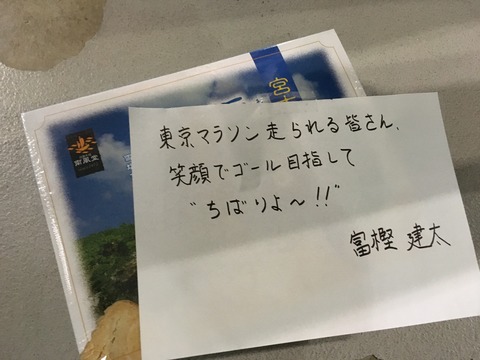 宮古
南風堂
東京マラソン走られる皆さん、
笑顔でゴール目指して
"ちばりよ～!!"
富樫 建太